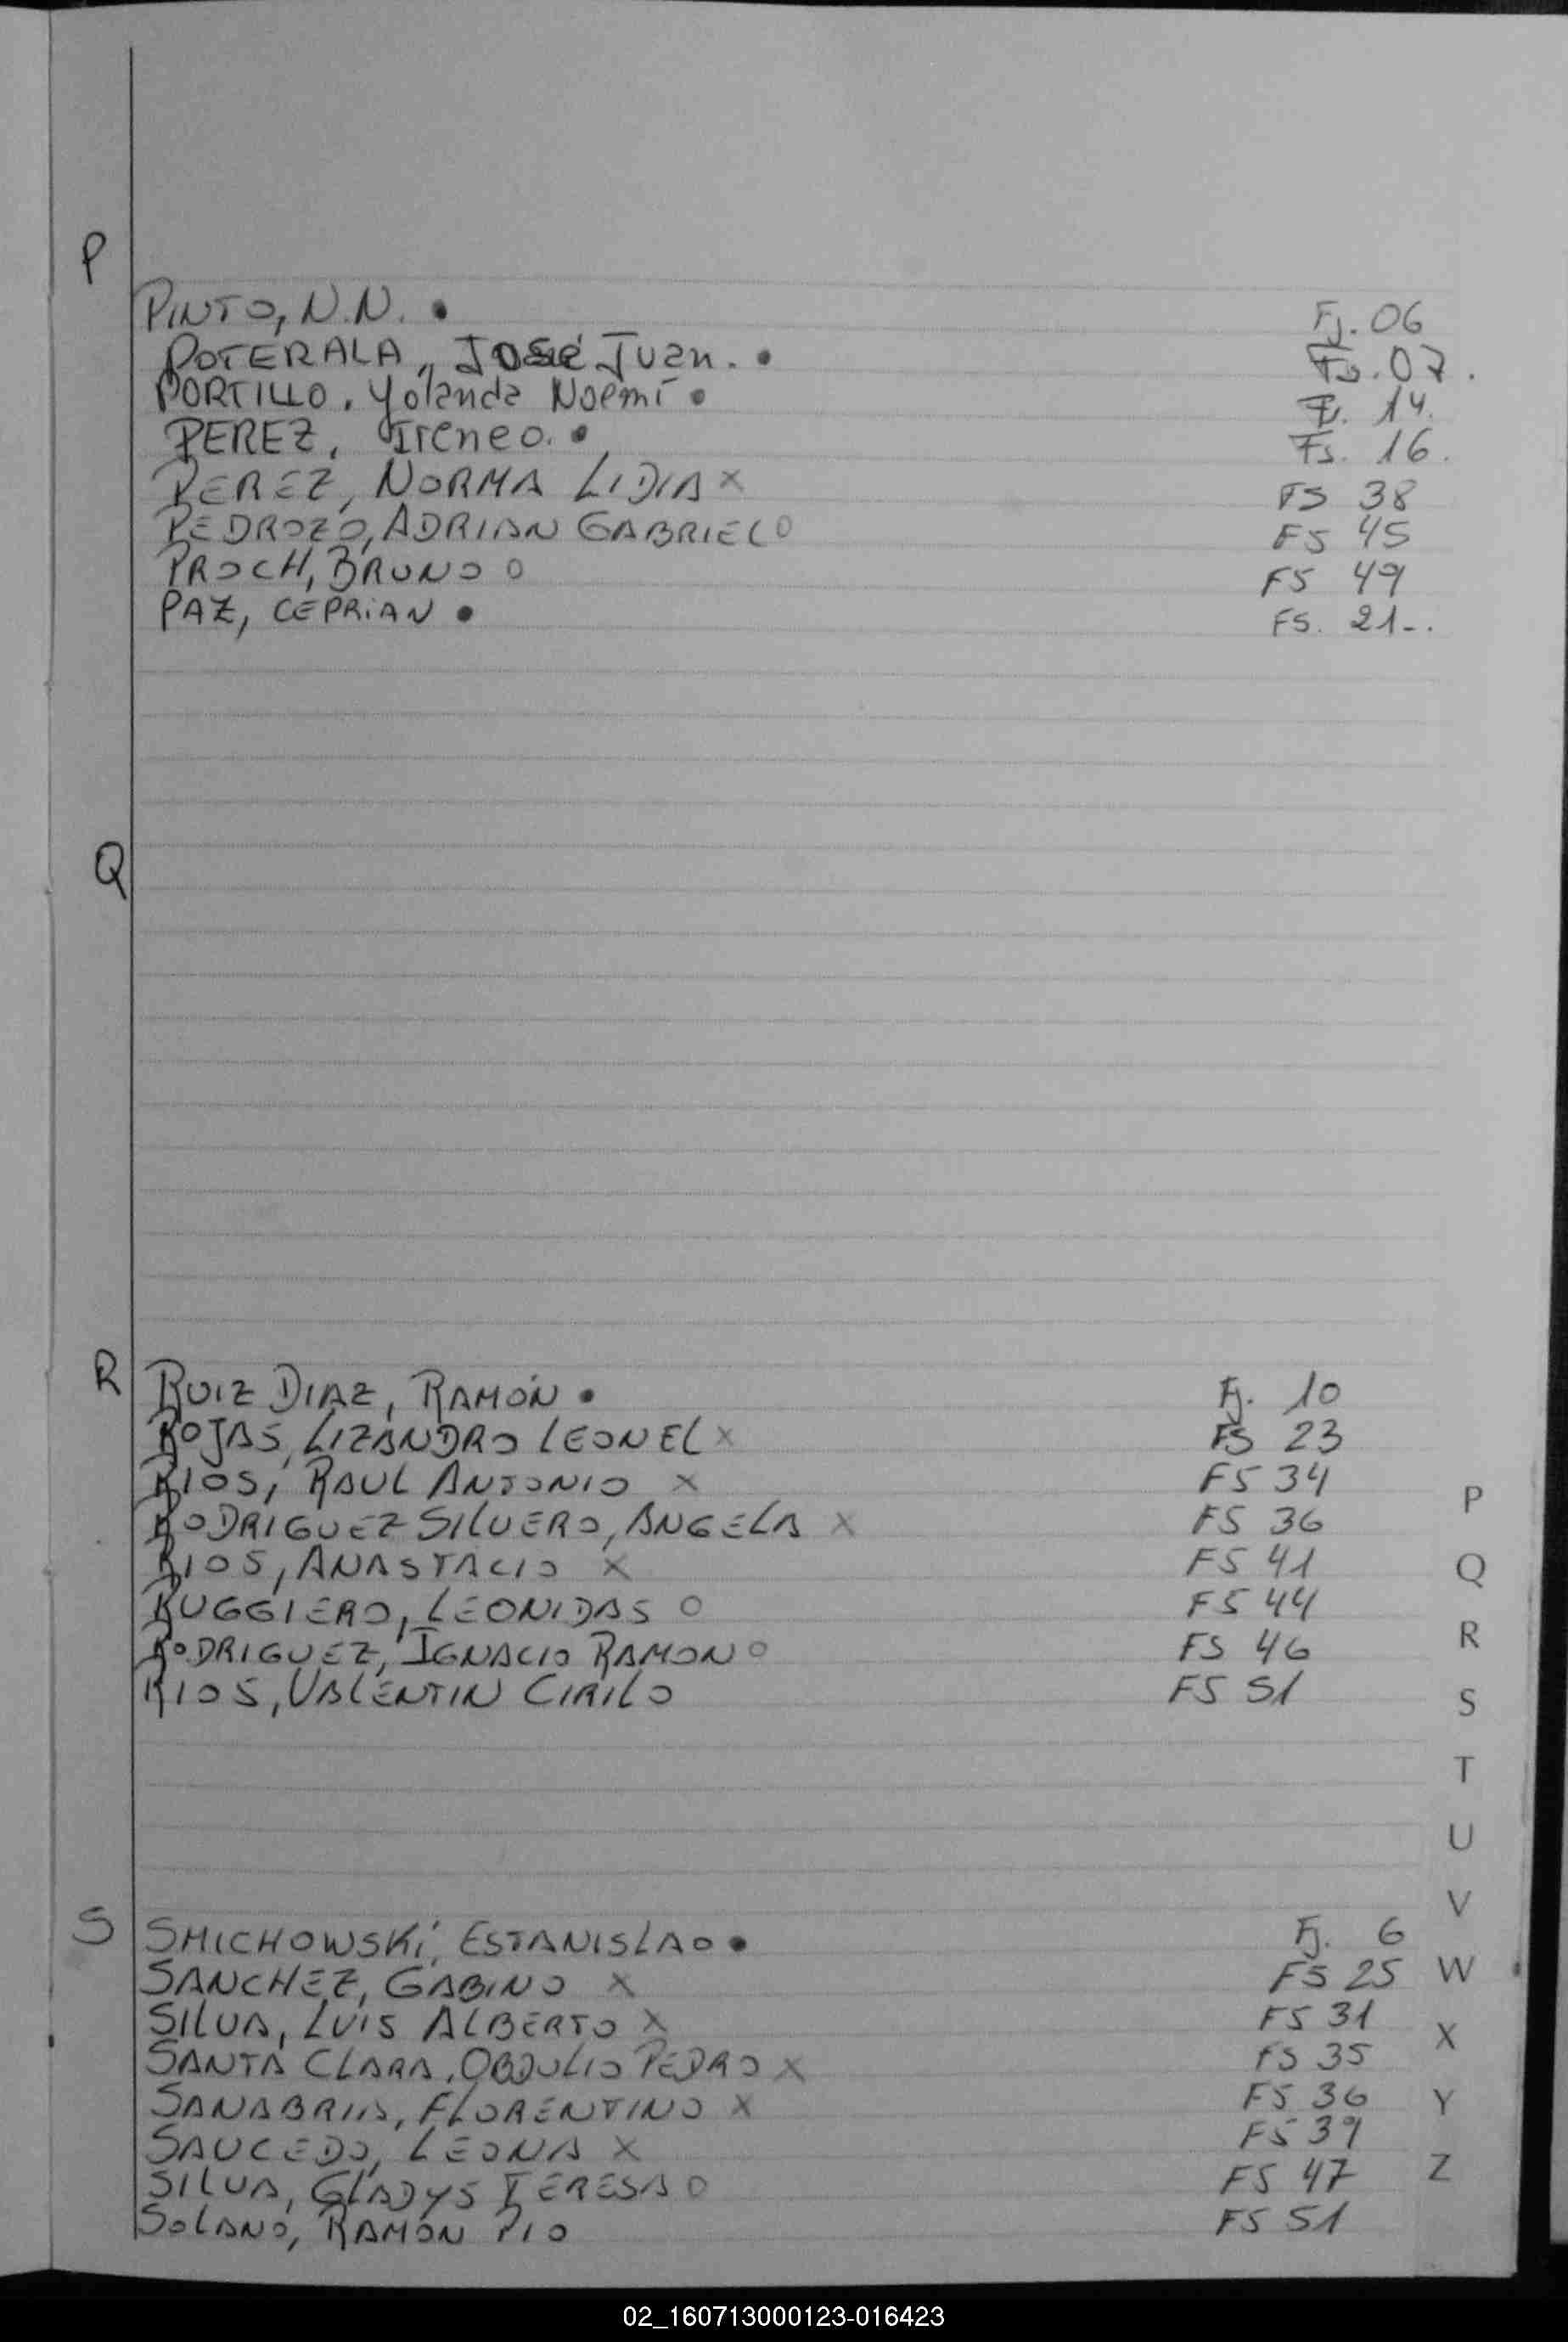 P
PINTO, N.N. • Fj. 06
POTERALA, José Juan. • Fs. 07.
PORTILLO, Yolanda Noemí • Fj. 14.
PEREZ, Ireneo. • Fs. 16.
PEREZ, NORMA LIDIA x FS 38
PEDROZO, ADRIAN GABRIEL O FS 45
PROCH, BRUNO O FS 49
PAZ, CEPRiAN • FS. 21-.
Q
R
RUIZ DIAZ, RAMÓN • Fj. 10
ROJAS, LIZANDRO LEONEL x FS 23
RIOS, RAUL ANTONIO x FS 34
RODRIGUEZ SILVERO, ANGELA x FS 36
RIOS, ANASTACIO x FS 41
RUGGIERO, LEONIDAS O FS 44
RODRIGUEZ, IGNACIO RAMON O FS 46
RIOS, VALENTIN CIRILO FS 51
S
SMICHOWSKi, ESTANISLAO • Fj. 6
SANCHEZ, GABINO x FS 25
SILVA, LUIS ALBERTO x FS 31
SANTA CLARA, OBDULIO PEDRO x FS 35
SANABRIA, FLORENTINO x FS 36
SAUCEDO, LEONA x FS 39
SILVA, GLADYS TERESA O FS 47
SOLANO, RAMON PIO FS 51
P
Q
R
S
T
U
V
W
X
Y
Z
02_160713000123-016423